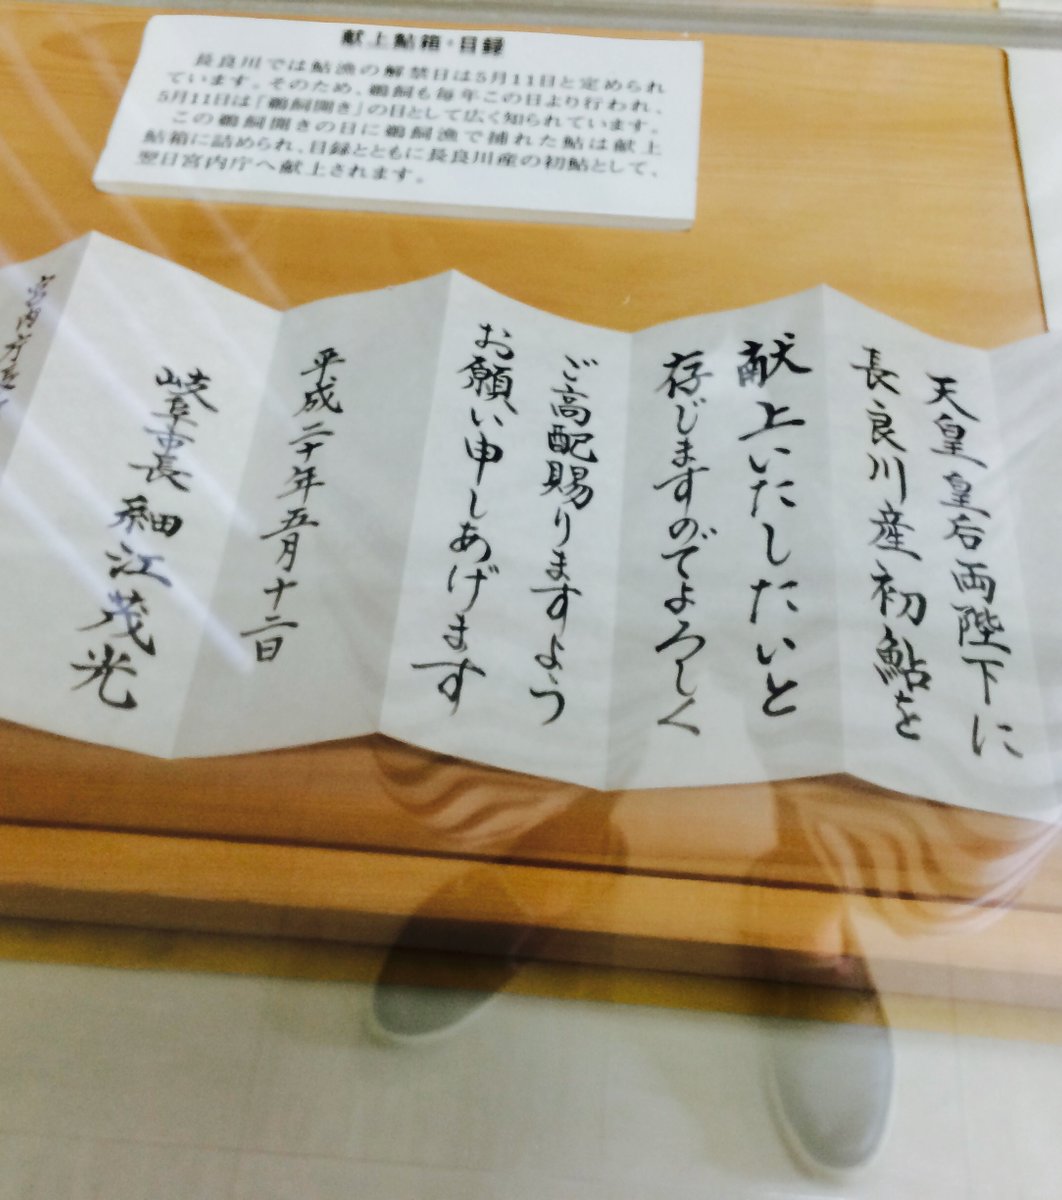 献上鮎箱・目録
長良川では鮎漁の解禁日は5月11日と定められ
ています。そのため、鵜飼も毎年この日より行われ、
5月11日は「鵜飼開き」の日として広く知られています。
この鵜飼開きの日に鵜飼漁で捕れた鮎は献上
鮎箱に詰められ、目録とともに長良川産の初鮎として、
翌日宮内庁へ献上されます。
天皇皇后両陛下に
長良川産初鮎を
献上いたしたいと
存じますのでよろしく
ご高配賜りますよう
お願い申しあげます
平成二十年五月十二日
岐阜市長 細江茂光
宮内庁